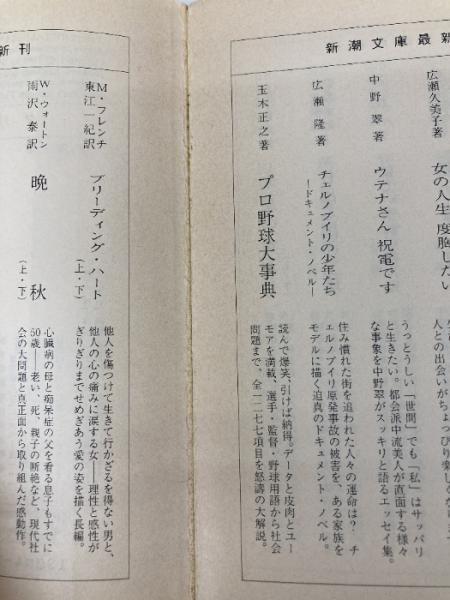 新潮文庫最新
広瀬久美子著
女の人生 度胸しだい
人との出会いがちょっぴり楽しく
中野 翠著
ウテナさん 祝電です
うっとうしい「世間」でも「私」はサッパリ
と生きたい。都会派中流美人が直面する様々
な事象を中野翠がスッキリと語るエッセイ集。
広瀬 隆著
チェルノブイリの少年たち
―ドキュメント・ノベル―
住み慣れた街を追われた人々の運命は?チ
ェルノブイリ原発事故の被害を、ある家族を
モデルに描く迫真のドキュメント・ノベル。
玉木正之著
プロ野球大事典
読んで爆笑、引けば納得。データと皮肉とユー
モアを満載、選手・監督・野球用語から社会
問題まで、全一二七七項目を怒濤の大解説。
新刊
M・フレンチ
東江一紀訳
ブリーディング・ハート
(上・下)
他人を傷つけて生きて行かざるを得ない男と、
他人の心の痛みに涙する女――理性と感性が
ぎりぎりまでせめぎあう愛の姿を描く長編。
W・ウォートン
雨沢 泰訳
晩 秋
(上・下)
心臓病の母と痴呆症の父を看る息子もすでに
50歳――老い、死、親子の断絶など、現代社
会の大問題と真正面から取り組んだ感動作。